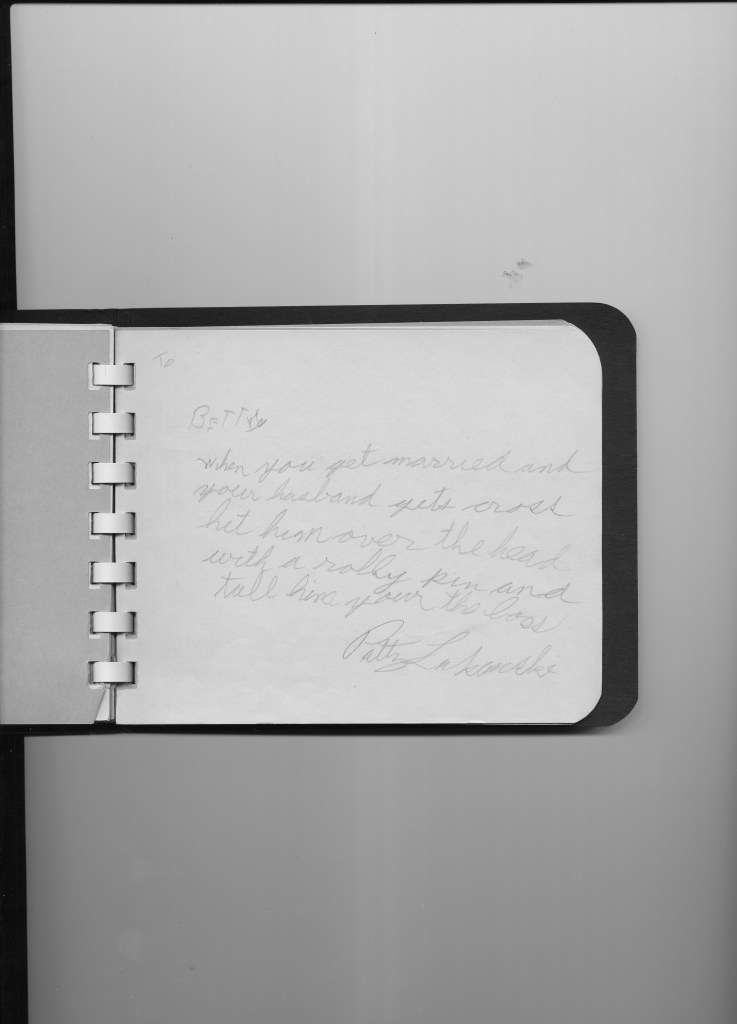 To
BETTY
When you get married and
your husband gets cross
hit him over the head
with a rolly pin and
tell him your the boss